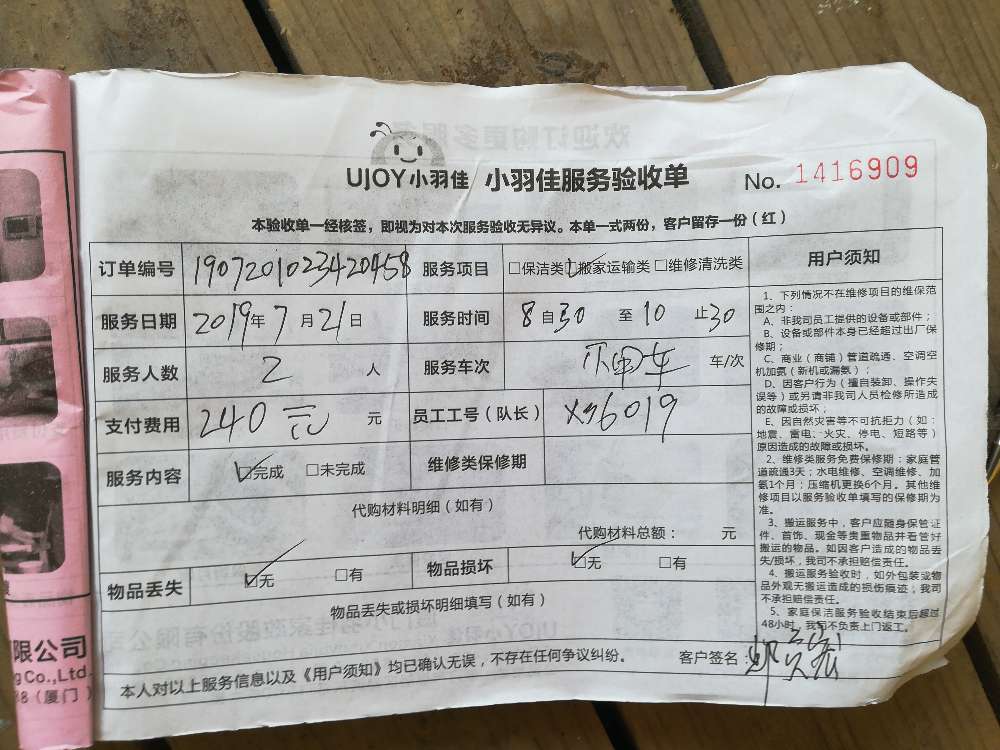 UJOY小羽佳 小羽佳服务验收单 No. 1416909
本验收单一经核签，即视为对本次服务验收无异议。本单一式两份，客户留存一份（红）
订单编号 1907201023420458 服务项目 □保洁类 ☑搬家运输类 □维修清洗类
服务日期 2019年7月21日 服务时间 8自30至10止30
服务人数 2 人 服务车次 车/次
支付费用 240元 元 员工工号（队长） X36019
服务内容 ☑完成 □未完成 维修类保修期
代购材料明细（如有）
代购材料总额： 元
物品丢失 ☑无 □有 物品损坏 ☑无 □有
物品丢失或损坏明细填写（如有）
本人对以上服务信息以及《用户须知》均已确认无误，不存在任何争议纠纷。 客户签名：
用户须知
1、下列情况不在维修项目的维保范
围之内：
A、非我司员工提供的设备或部件；
B、设备或部件本身已经超过出厂保
修期；
C、商业（商铺）管道疏通、空调空
机加氨（新机或漏氨）；
D、因客户行为（擅自装卸、操作失
误等）或另请非我司人员检修所造成
的故障或损坏；
E、因自然灾害等不可抗拒力（如：
地震、雷电、火灾、停电、短路等）
原因造成的故障或损坏。
2、维修类服务免费保修期：家庭管
道疏通3天；水电维修、空调维修、加
氨1个月；压缩机更换6个月。其他维
修项目以服务验收单填写的保修期为
准。
3、搬运服务中，客户应随身保管证
件、首饰、现金等贵重物品并看管好
搬运的物品。如因客户造成的物品丢
失/损坏，我司不承担赔偿责任。
4、搬运服务验收时，如外包装或物
品外观无搬运造成的损伤痕迹，我司
不承担赔偿责任。
5、家庭保洁服务验收结束后超过
48小时，我司不负责上门返工。
限公司
g Co.,Ltd.
（厦门）